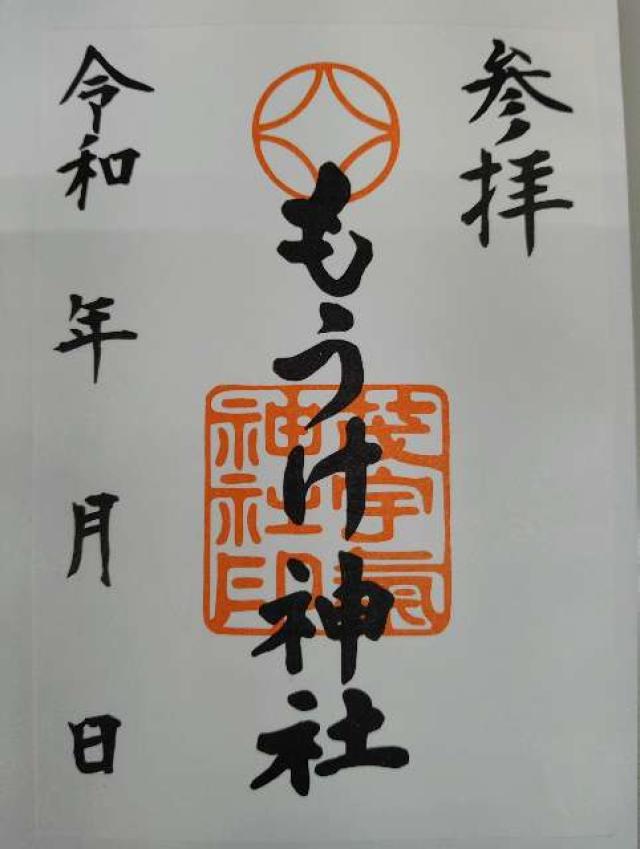 参拝
もうけ神社
神社印
令和 年 月 日